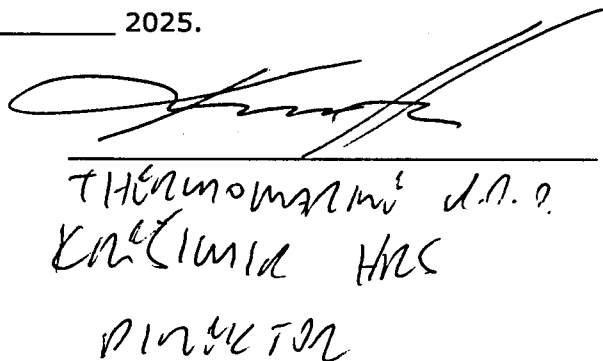 2025.
THERMOMARINE d.o.o.
KREŠIMIR HRS
DIREKTOR